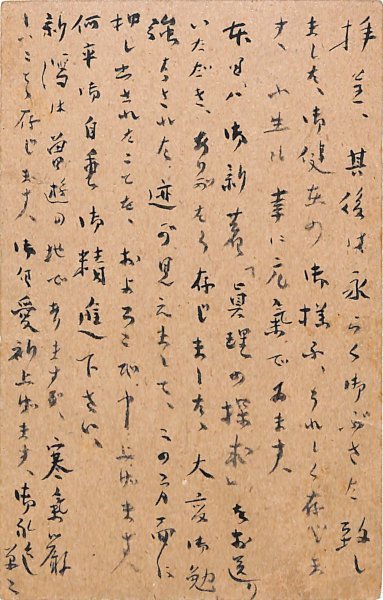 拝呈、其後は永らく御ぶさた致し
ました、御健在の御様子、うれしく存じま
す、小生は幸に元気でゐます、
本日は御新著「眞理の探求」をお送り
いただき、ありがたく存じました、大変御勉
強なされた迹が見えまして、この方面に
押し出されたことを、およろこび申上げます、
何卒御自重御精進下さい、
新潟は曽遊の地でありますが、寒気厳
しいことと存じます、御自愛祈上げます、御礼迄 草々